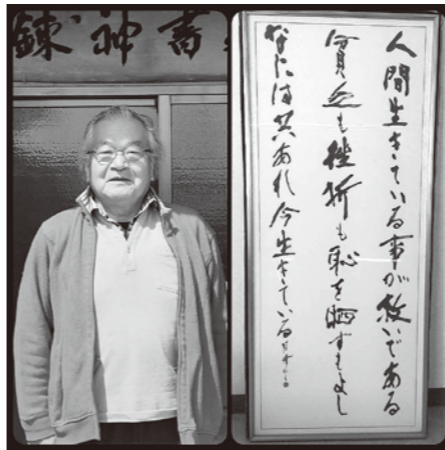 錬神書
人間生きている事が救いである
貧乏も挫折も恥を晒すもよし
なには共あれ今生きている